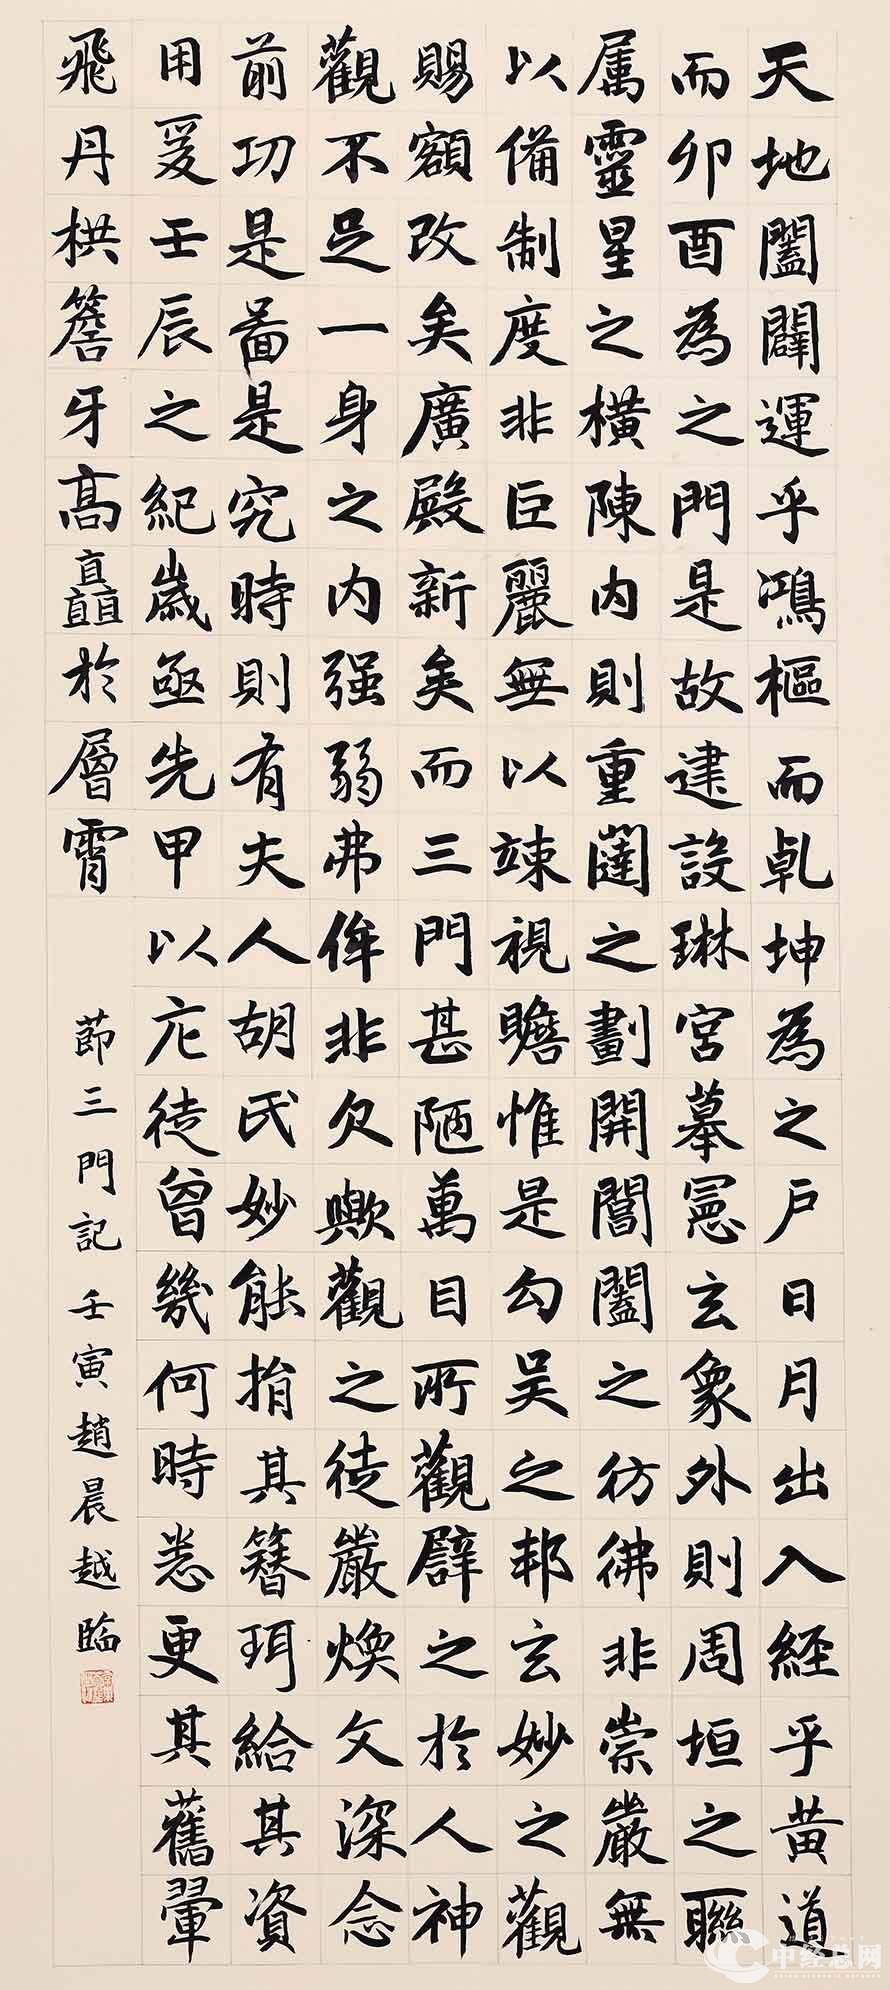 天地闔闢運乎鴻樞而乹坤為之戶日月出入經乎黄道
而卯酉為之門是故建設琳宮摹憲玄象外則周垣之聯
属靈星之横陳内則重闥之劃開閶闔之彷彿非崇嚴無
以備制度非巨麗無以竦視瞻惟是勾吴之邦玄妙之觀
賜額改矣廣殿新矣而三門甚陋萬目所觀辟之於人神
觀不足一身之内强弱弗侔非欠歟觀之徒嚴焕文深念
前功是啚是究時則有夫人胡氏妙能捐其簪珥給其資
用爰壬辰之紀歳亟先甲以庀徒曾幾何時悉更其舊翬
飛丹栱簷牙高矗於層霄
莭三門記壬寅趙晨越臨
中经总网